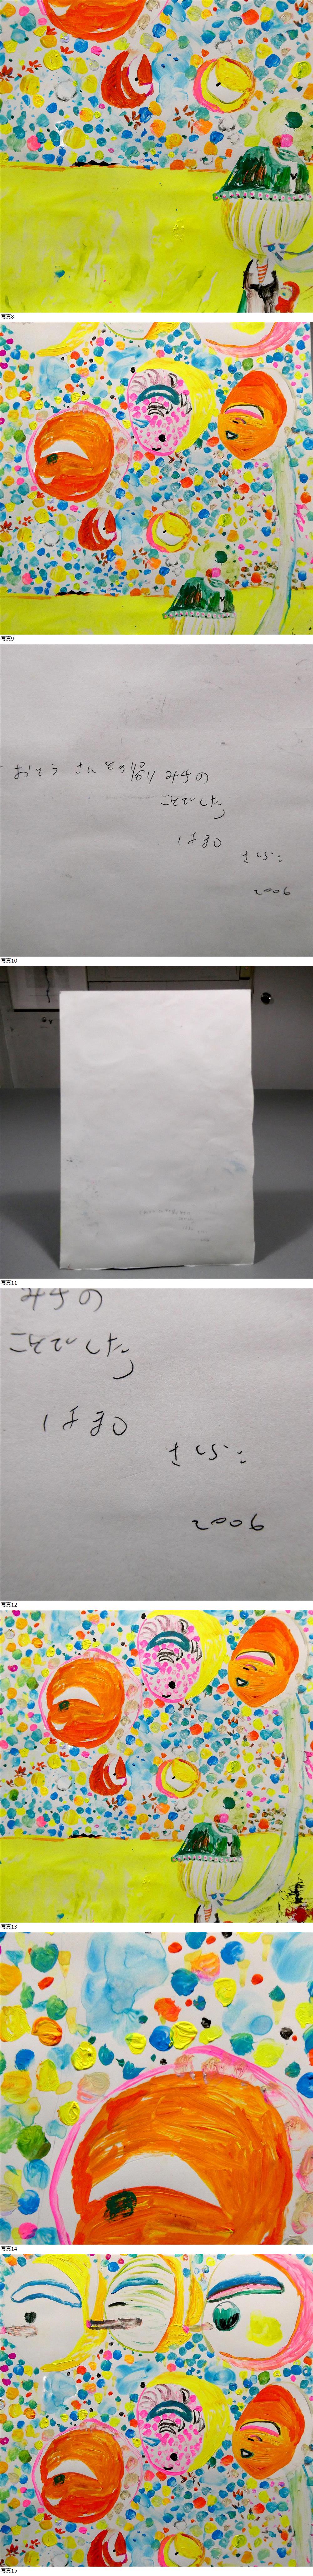 写真8
写真9
おとうさんその帰りみちの
ことでした
はまの
さくらこ
2006
写真10
写真11
みちの
ことでした
はまの
さくらこ
2006
写真12
写真13
写真14
写真15